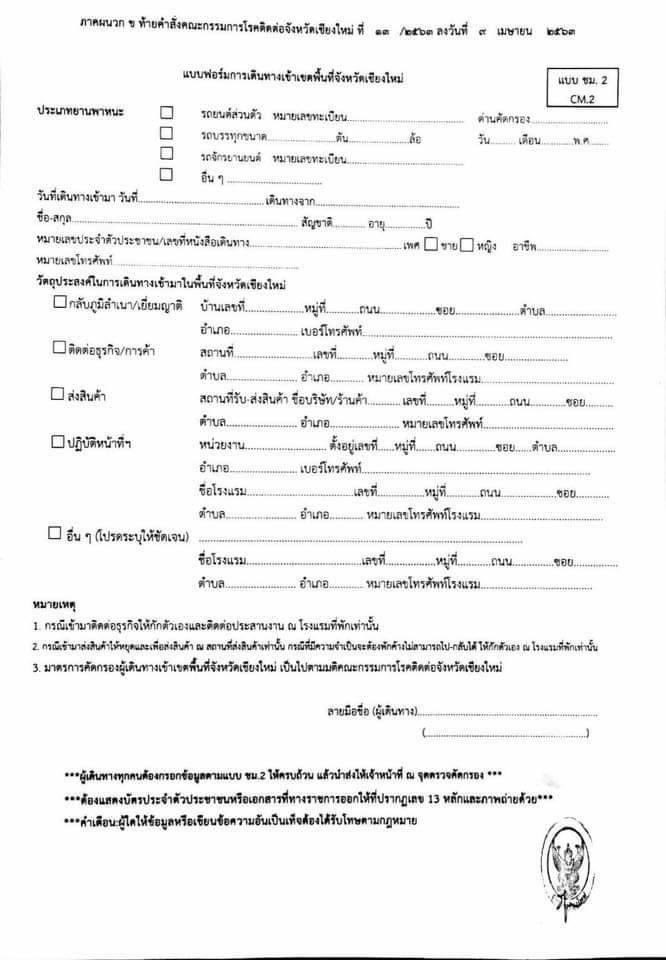 ภาคผนวก ข ท้ายคำสั่งคณะกรรมการโรคติดต่อจังหวัดเชียงใหม่ ที่ ๑๓ /๒๕๖๓ ลงวันที่ ๙ เมษายน ๒๕๖๓
แบบฟอร์มการเดินทางเข้าเขตพื้นที่จังหวัดเชียงใหม่
แบบ ชม. 2
CM.2
ประเภทยานพาหนะ ☐ รถยนต์ส่วนตัว หมายเลขทะเบียน.................... ด่านคัดกรอง....................
☐ รถบรรทุกขนาด....................ตัน....................ล้อ วัน........เดือน..........พ.ศ.......
☐ รถจักรยานยนต์ หมายเลขทะเบียน....................
☐ อื่น ๆ ....................
วันที่เดินทางเข้ามา วันที่....................เดินทางจาก....................
ชื่อ-สกุล.................... สัญชาติ.......... อายุ..........ปี
หมายเลขประจำตัวประชาชน/เลขที่หนังสือเดินทาง....................เพศ ☐ ชาย ☐ หญิง อาชีพ....................
หมายเลขโทรศัพท์ ....................
วัตถุประสงค์ในการเดินทางเข้ามาในพื้นที่จังหวัดเชียงใหม่
☐ กลับภูมิลำเนา/เยี่ยมญาติ บ้านเลขที่..........หมู่ที่..........ถนน..........ซอย..........ตำบล..........
อำเภอ.................... เบอร์โทรศัพท์....................
☐ ติดต่อธุรกิจ/การค้า สถานที่....................เลขที่..........หมู่ที่..........ถนน..........ซอย..........
ตำบล.......... อำเภอ.......... หมายเลขโทรศัพท์โรงแรม....................
☐ ส่งสินค้า สถานที่รับ-ส่งสินค้า ชื่อบริษัท/ร้านค้า.......... เลขที่........หมู่ที่........ถนน..........ซอย........
ตำบล.......... อำเภอ.......... หมายเลขโทรศัพท์....................
☐ ปฏิบัติหน้าที่ฯ หน่วยงาน.................... ตั้งอยู่เลขที่......หมู่ที่......ถนน..........ซอย......ตำบล..........
อำเภอ.................... เบอร์โทรศัพท์....................
ชื่อโรงแรม....................เลขที่..........หมู่ที่..........ถนน..........ซอย..........
ตำบล.......... อำเภอ.......... หมายเลขโทรศัพท์โรงแรม....................
☐ อื่น ๆ (โปรดระบุให้ชัดเจน) ....................
ชื่อโรงแรม....................เลขที่..........หมู่ที่..........ถนน..........ซอย..........
ตำบล.......... อำเภอ.......... หมายเลขโทรศัพท์โรงแรม....................
หมายเหตุ
1. กรณีเข้ามาติดต่อธุรกิจให้กักตัวเองและติดต่อประสานงาน ณ โรงแรมที่พักเท่านั้น
2. กรณีเข้ามาส่งสินค้าให้หยุดและเพื่อส่งสินค้า ณ สถานที่ส่งสินค้าเท่านั้น กรณีที่มีความจำเป็นจะต้องพักค้างไม่สามารถไป-กลับได้ ให้กักตัวเอง ณ โรงแรมที่พักเท่านั้น
3. มาตรการคัดกรองผู้เดินทางเข้าเขตพื้นที่จังหวัดเชียงใหม่ เป็นไปตามมติคณะกรรมการโรคติดต่อจังหวัดเชียงใหม่
ลายมือชื่อ (ผู้เดินทาง)....................
(....................)
***ผู้เดินทางทุกคนต้องกรอกข้อมูลตามแบบ ชม.2 ให้ครบถ้วน แล้วนำส่งให้เจ้าหน้าที่ ณ จุดตรวจคัดกรอง ***
***ต้องแสดงบัตรประจำตัวประชาชนหรือเอกสารที่ทางราชการออกให้ที่ปรากฏเลข 13 หลักและภาพถ่ายด้วย***
***คำเตือน:ผู้ใดให้ข้อมูลหรือเขียนข้อความอันเป็นเท็จต้องได้รับโทษตามกฎหมาย